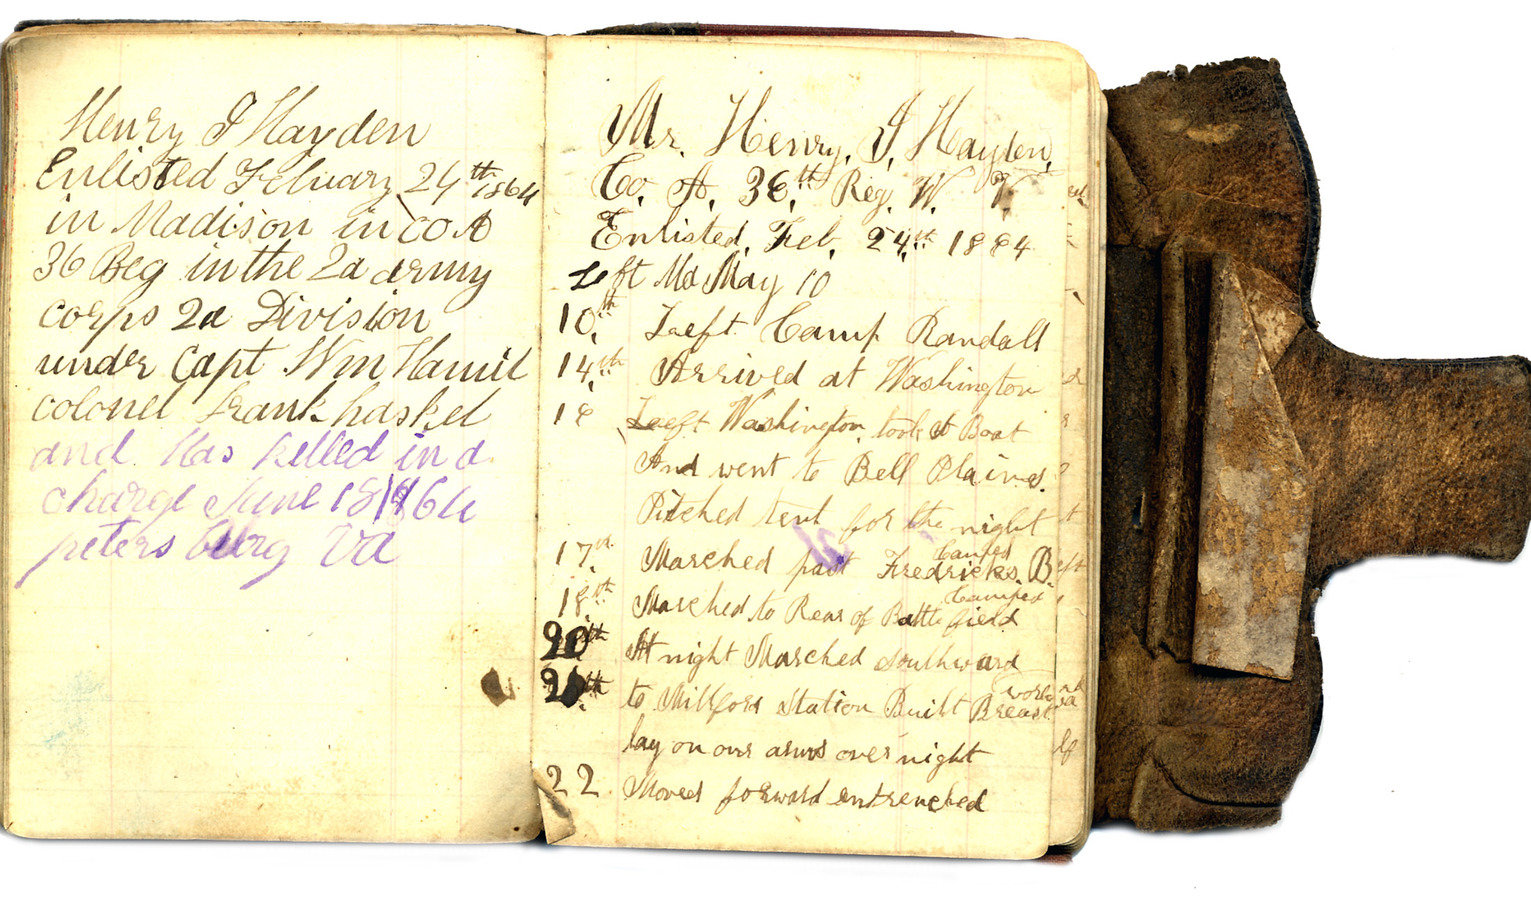 Henry I Hayden
Enlisted February 24th 1864
in Madison in CO A
36 Reg in the 2d army
corps 2d Division
under Capt Wm Hamil
colonel frank haskel
and Was killed in a
charge June 18 1864
peters burg Va
Mr. Henry, I, Hayden,
Co, A, 36,th Reg. W. V.
Enlisted, Feb, 24,th 1864
Left Md May 10
10,th Laeft Camp Randall
14,th Arrived at Washington
16 Laeft Washington, took A Boat
And went to Bell Plaines.
Pitched tent for the night
17,th Marched past Fredricks, B. Camped
18th Marched to Rear of Battlefield Camped
20th At night Marched Southward
to Millford Station Built Breast works
lay on our arms over night
22 Moved forward entrenched